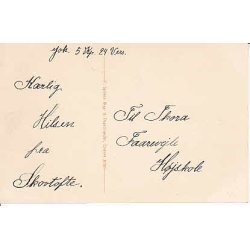 Jok. 5 Kp. 24 Vers.
Kærlig
Hilsen
fra
Skovtofte.
Til Thora
Faarevejle
Højskole